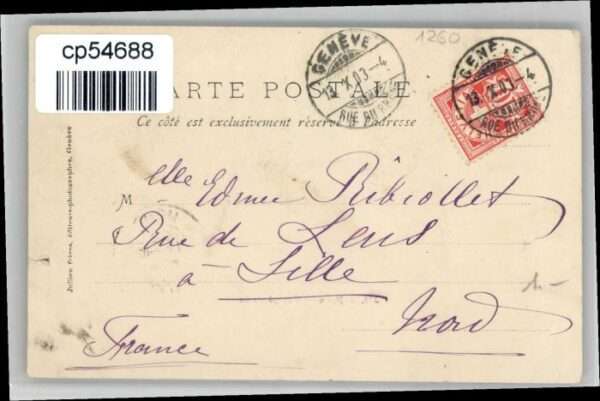 cp54688
1260
GENÈVE
13. X. 03 - 4
RUE DU
GENÈVE
13. X. 03 - 4
RUE DU
CARTE POSTALE
Ce côté est exclusivement réservé à l'adresse
M elle Edmée Ribiollet
Rue de Lens
à Lille
Nord
France
1.-
Jullien Frères, éditeurs-photographes, Genève